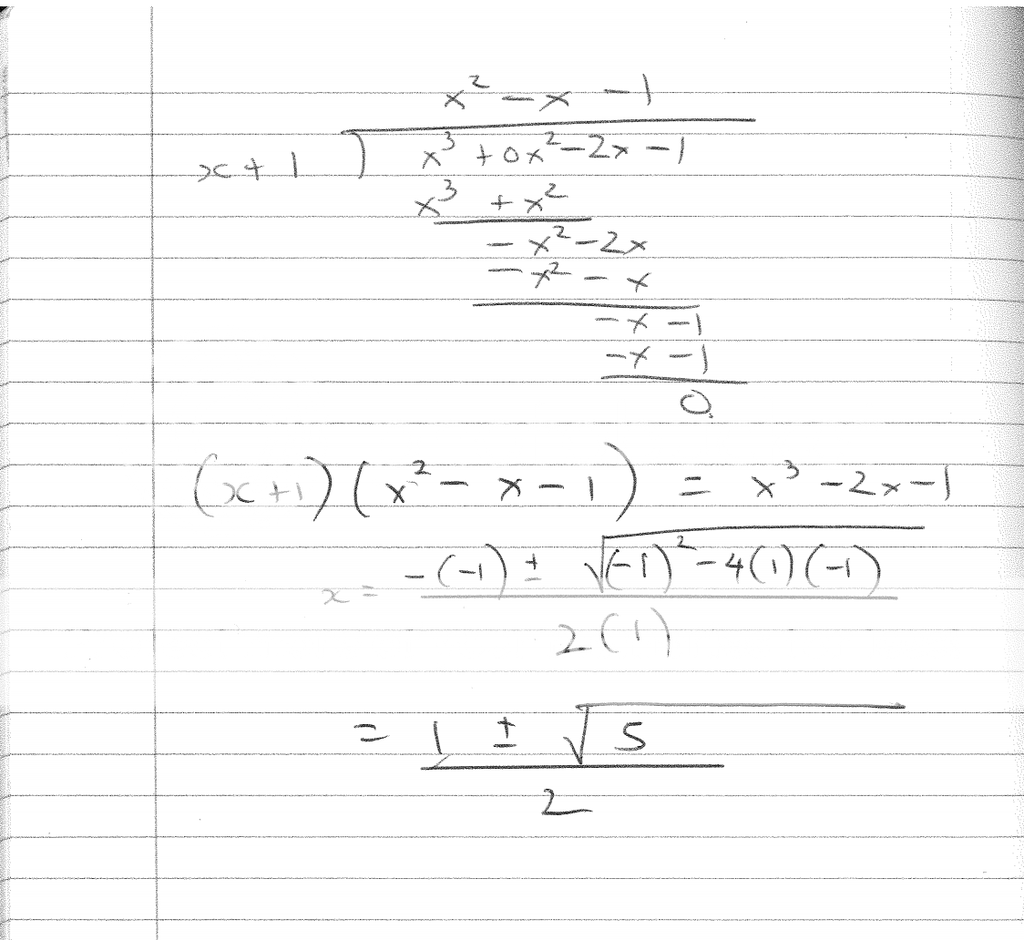 x² - x - 1
x + 1 ) x³ + 0x² - 2x - 1
x³ + x²
- x² - 2x
- x² - x
- x - 1
- x - 1
0
(x + 1)(x² - x - 1) = x³ - 2x - 1
x = (-(-1) ± √((-1)² - 4(1)(-1))) / 2(1)
= (1 ± √5) / 2